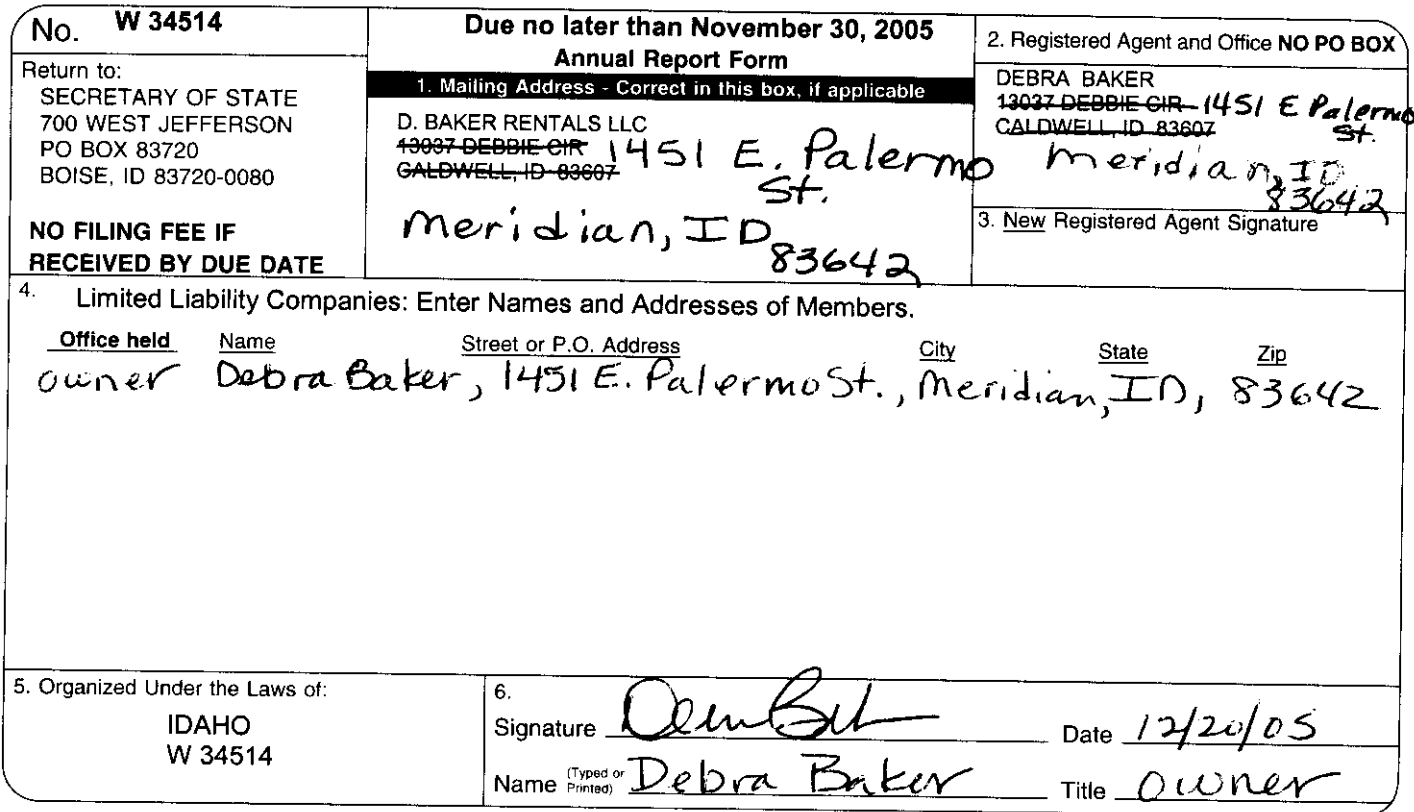 No. W 34514
Return to:
SECRETARY OF STATE
700 WEST JEFFERSON
PO BOX 83720
BOISE, ID 83720-0080
NO FILING FEE IF
RECEIVED BY DUE DATE
Due no later than November 30, 2005
Annual Report Form
1. Mailing Address - Correct in this box, if applicable
D. BAKER RENTALS LLC
13037 DEBBIE CIR 1451 E. Palermo
CALDWELL, ID 83607 St.
Meridian, ID
83642
2. Registered Agent and Office NO PO BOX
DEBRA BAKER
13037 DEBBIE CIR 1451 E Palermo
CALDWELL, ID 83607 St.
Meridian, ID
83642
3. New Registered Agent Signature
4. Limited Liability Companies: Enter Names and Addresses of Members.
Office held Name Street or P.O. Address City State Zip
owner Debra Baker, 1451 E. Palermo St., Meridian, ID, 83642
5. Organized Under the Laws of:
IDAHO
W 34514
6.
Signature Date 12/20/05
Name (Typed or Printed) Debra Baker Title Owner